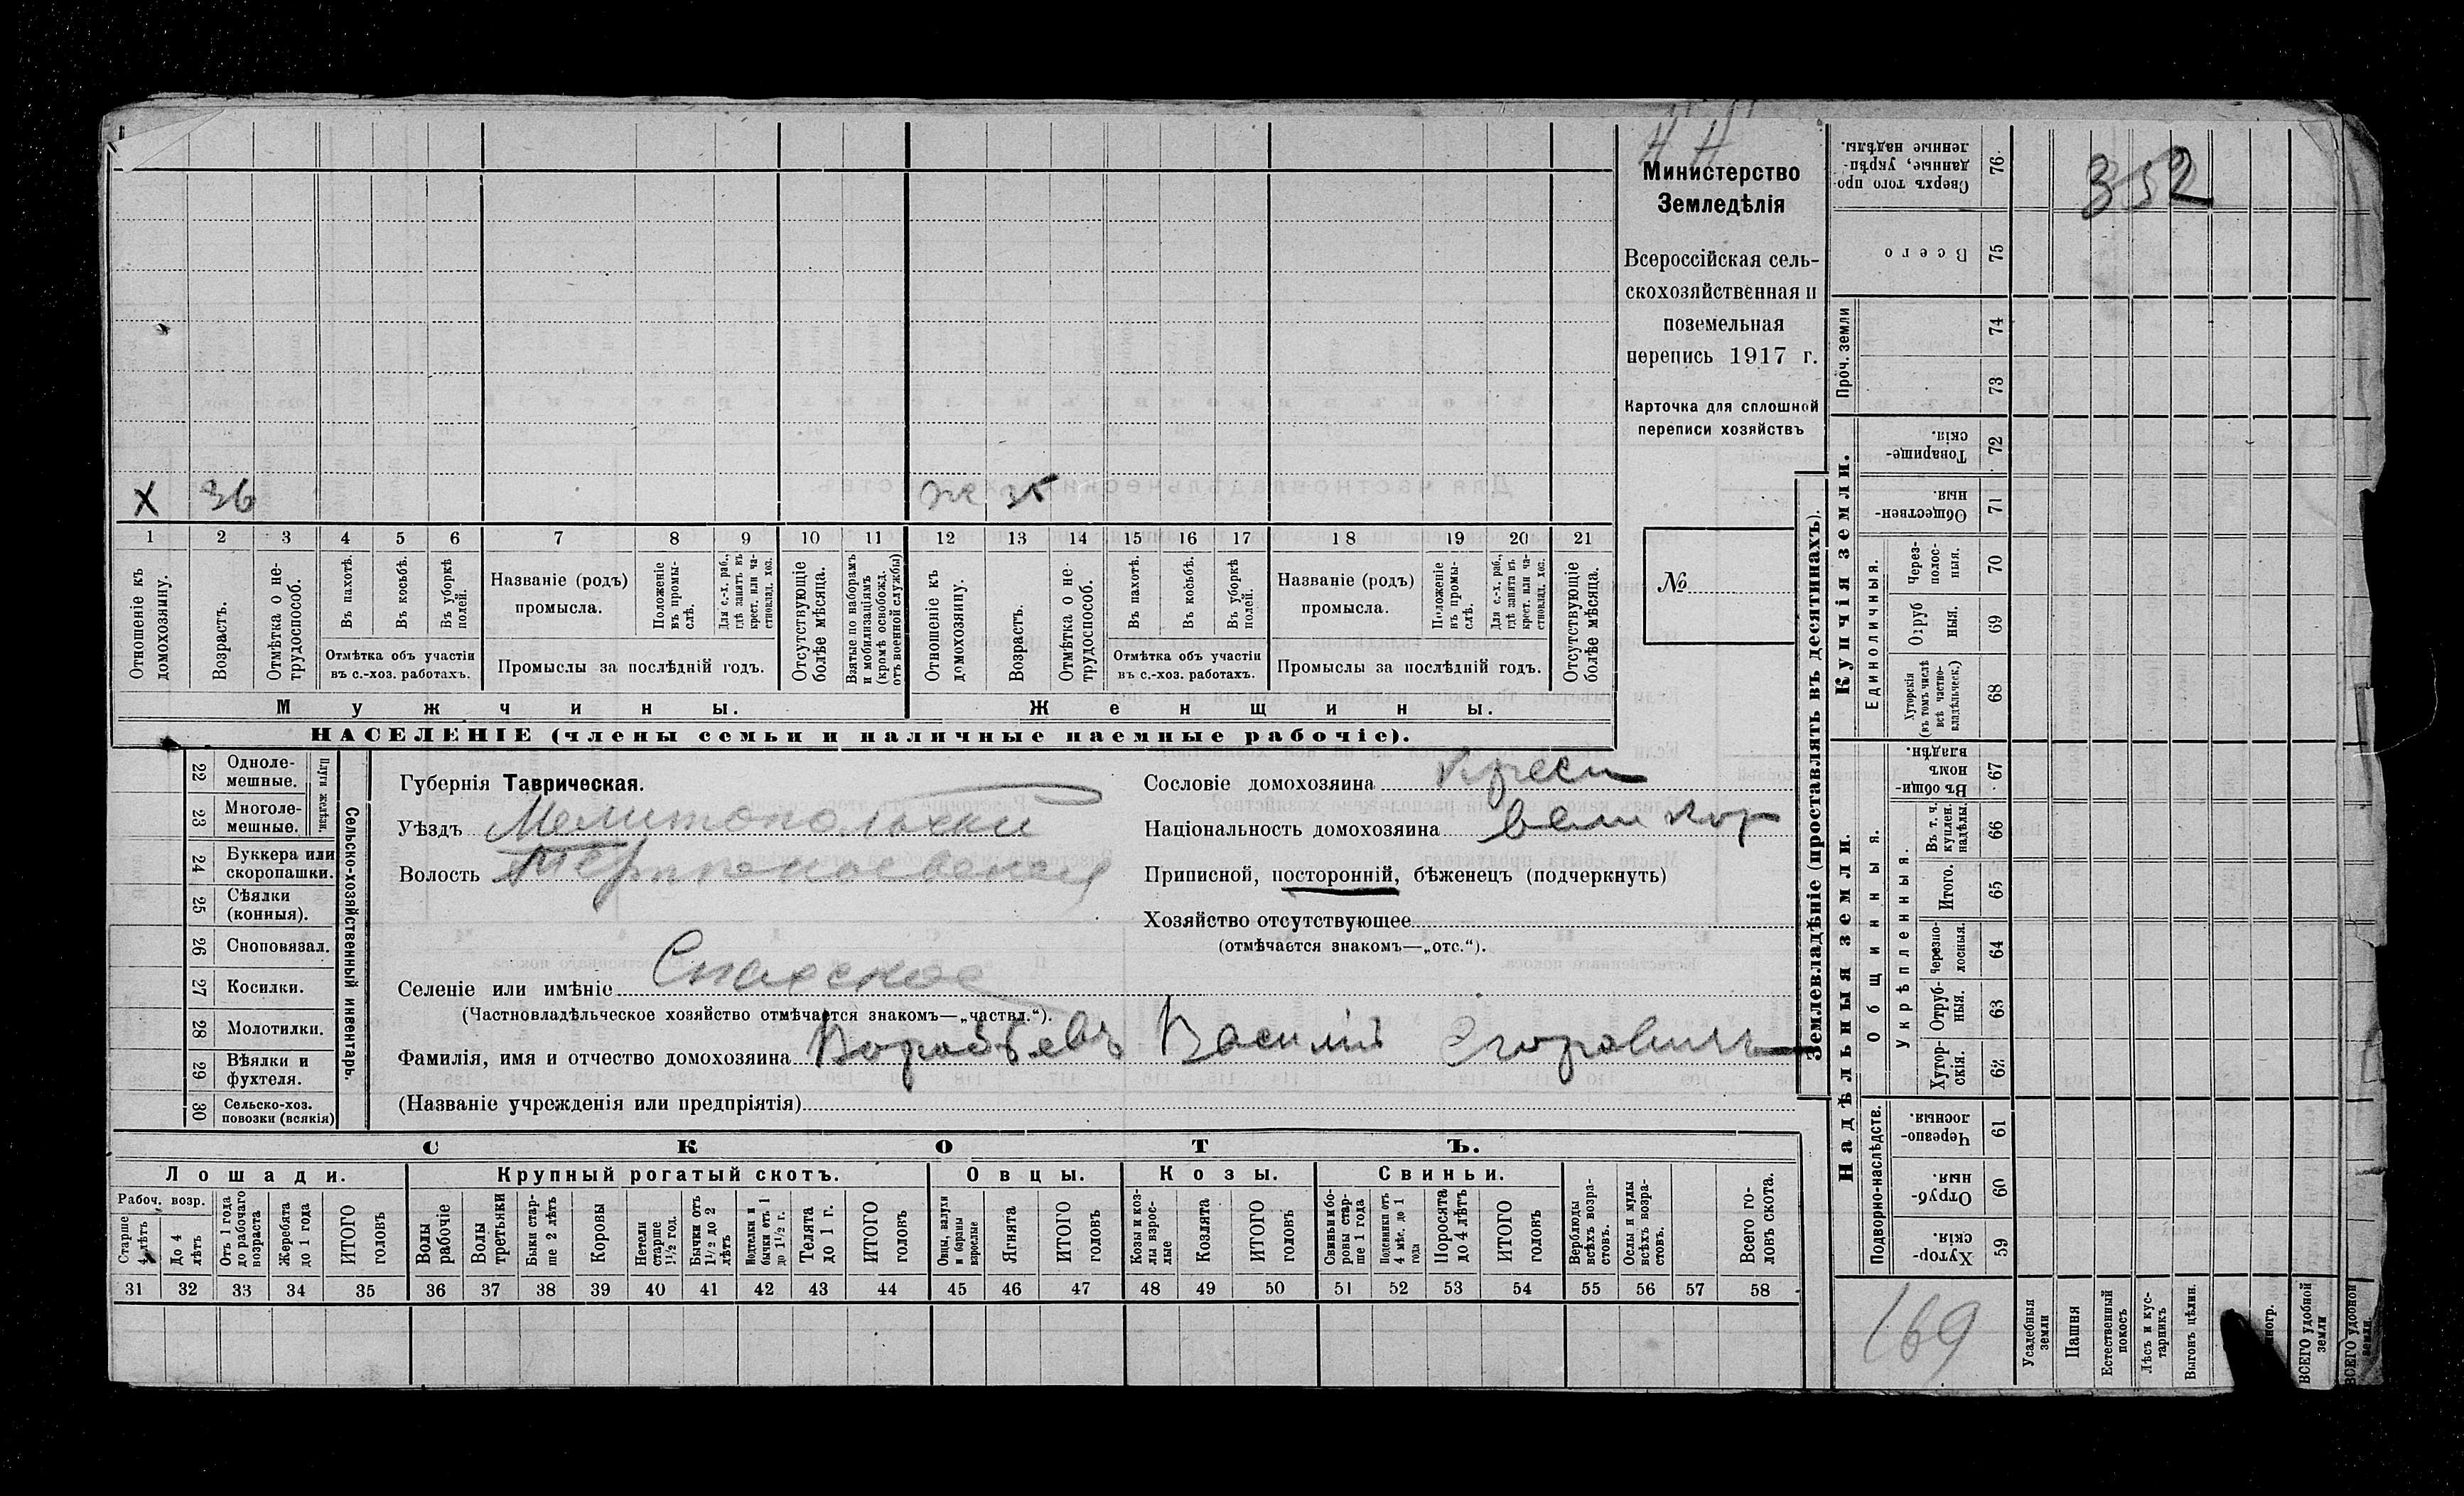 Министерство
Земледѣлія
Всероссійская сель-
скохозяйственная и
поземельная
перепись 1917 г.
Карточка для сплошной
переписи хозяйствъ
№
Х 36 ж 35
1 2 3 4 5 6 7 8 9 10 11 12 13 14 15 16 17 18 19 20 21
Отношеніе къ домохозяину.
Возрастъ.
Отмѣтка о не-трудоспособ.
Въ пахотѣ.
Въ косьбѣ.
Въ уборкѣ полей.
Отмѣтка объ участіи
въ с.-хоз. работахъ.
Названіе (родъ)
промысла.
Положеніе въ промы-слѣ.
Для с.-х. раб., гдѣ занятъ въ крест. или ча-стновлад. хоз.
Промыслы за послѣдній годъ.
Отсутствующіе болѣе мѣсяца.
Взятые по наборамъ и мобилизаціямъ (кромѣ освобожд. отъ военной службы)
Отношеніе къ домохозяину.
Возрастъ.
Отмѣтка о не-трудоспособ.
Въ пахотѣ.
Въ косьбѣ.
Въ уборкѣ полей.
Отмѣтка объ участіи
въ с.-хоз. работахъ.
Названіе (родъ)
промысла.
Положеніе въ промы-слѣ.
Для с.-х. раб., гдѣ занята въ крест. или ча-стновлад. хоз.
Промыслы за послѣдній годъ.
Отсутствующіе болѣе мѣсяца.
Мужчины.
Женщины.
НАСЕЛЕНІЕ (члены семьи и наличные наемные рабочіе).
Сельско-хозяйственный инвентарь.
Плуги желѣзн.
22 Одноле-мешные.
23 Многоле-мешные.
24 Буккера или скоропашки.
25 Сѣялки (конныя).
26 Сноповязал.
27 Косилки.
28 Молотилки.
29 Вѣялки и фухтеля.
30 Сельско-хоз. повозки (всякія)
Губернія Таврическая.
Уѣздъ Мелитопольскій
Волость
Селеніе или имѣніе Спасское
(Частновладѣльческое хозяйство отмѣчается знакомъ—„частвл.“).
Фамилія, имя и отчество домохозяина Воробьевъ Василій Егоровичъ
(Названіе учрежденія или предпріятія)
Сословіе домохозяина Крест
Національность домохозяина великор
Приписной, посторонній, бѣженецъ (подчеркнуть)
Хозяйство отсутствующее
(отмѣчается знакомъ—„отс.“).
СКОТЪ.
Лошади.
Крупный рогатый скотъ.
Овцы.
Козы.
Свиньи.
Рабоч. возр.
Старше 4 лѣтъ
До 4 лѣтъ
Отъ 1 года до рабочаго возраста
Жеребята до 1 года
ИТОГО головъ
Волы рабочіе
Волы третьяки
Быки стар-ше 2 лѣтъ
Коровы
Нетели старше 1½ год.
Бычки отъ 1½ до 2 лѣтъ
Подтелки и бычки отъ 1 до 1½ г.
Телята до 1 г.
ИТОГО головъ
Овцы, валухи и бараны взрослые
Ягнята
ИТОГО головъ
Козы и коз-лы взрос-лые
Козлята
ИТОГО головъ
Свиньи и бо-ровы стар-ше 1 года
Подсвинки отъ 4 мѣс. до 1 года
Поросята до 4 лѣтъ
ИТОГО головъ
Верблюды всѣхъ возра-стовъ.
Ослы и мулы всѣхъ возра-стовъ.
Всего го-ловъ скота.
31 32 33 34 35 36 37 38 39 40 41 42 43 44 45 46 47 48 49 50 51 52 53 54 55 56 57 58
Землевладѣніе (проставлять въ десятинахъ).
Надѣльныя земли.
Купчія земли.
Проч. земли
Подворно-наслѣдств.
Общинныя.
Укрѣпленныя.
Единоличныя.
Сверхъ того про-данные, укрѣп-ленные надѣлы. 76
Всего 75
74
73
Товарище-скія. 72
Обществен-ныя 71
Через-полос-ныя. 70
Отруб ныя. 69
Хуторскія (въ томъ числѣ всѣ частно-владѣльческ.) 68
Въ общи-номъ владѣн. 67
Въ т. ч. куплен. надѣлы. 66
Итого. 65
Черезпо-лосныя. 64
Отруб-ныя. 63
Хутор-скія. 62
Черезпо-лосныя. 61
Отруб-ныя. 60
Хутор-скія. 59
Усадебныя земли
Пашня
Естественный покосъ
Лѣсъ и кус-тарникъ
Выгонъ цѣлин.
ВСЕГО удобной земли
ВСЕГО удобной земли.
352
169